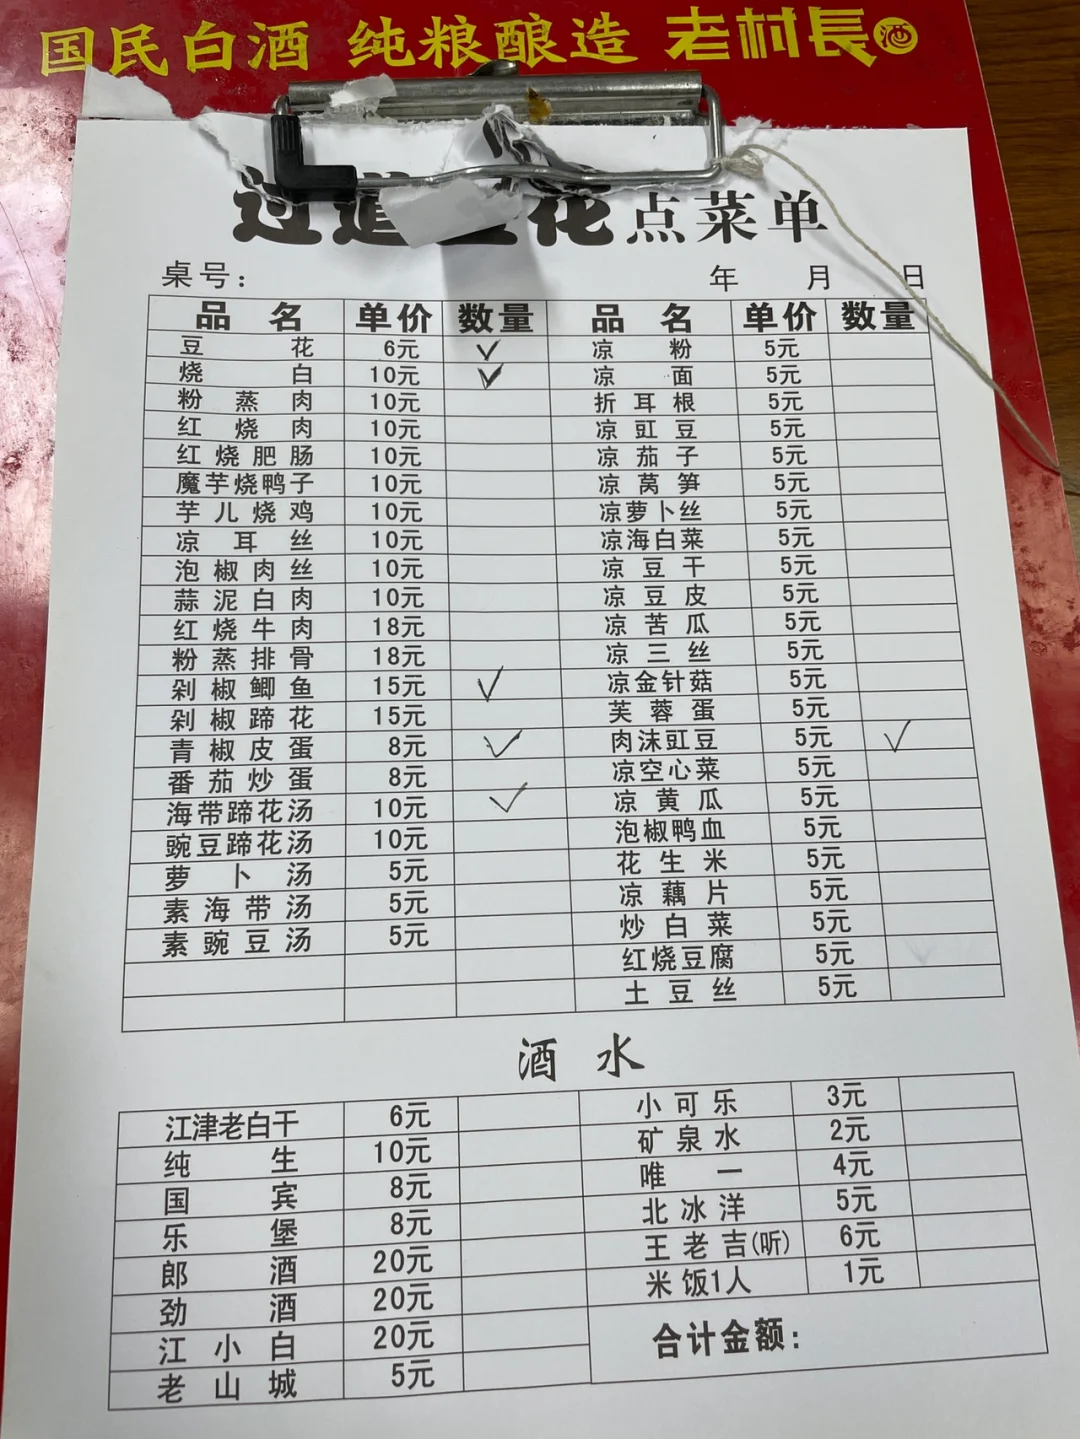 国民白酒 纯粮酿造 老村長酒
过道豆花点菜单
桌号： 年 月 日
品名 单价 数量 品名 单价 数量
豆花 6元 ✓ 凉粉 5元
烧白 10元 ✓ 凉面 5元
粉蒸肉 10元 折耳根 5元
红烧肉 10元 凉豇豆 5元
红烧肥肠 10元 凉茄子 5元
魔芋烧鸭子 10元 凉莴笋 5元
芋儿烧鸡 10元 凉萝卜丝 5元
凉耳丝 10元 凉海白菜 5元
泡椒肉丝 10元 凉豆干 5元
蒜泥白肉 10元 凉豆皮 5元
红烧牛肉 18元 凉苦瓜 5元
粉蒸排骨 18元 凉三丝 5元
剁椒鲫鱼 15元 ✓ 凉金针菇 5元
剁椒蹄花 15元 芙蓉蛋 5元
青椒皮蛋 8元 ✓ 肉沫豇豆 5元 ✓
番茄炒蛋 8元 凉空心菜 5元
海带蹄花汤 10元 ✓ 凉黄瓜 5元
豌豆蹄花汤 10元 泡椒鸭血 5元
萝卜汤 5元 花生米 5元
素海带汤 5元 凉藕片 5元
素豌豆汤 5元 炒白菜 5元
红烧豆腐 5元
土豆丝 5元
酒水
江津老白干 6元 小可乐 3元
纯生 10元 矿泉水 2元
国宾 8元 唯一 4元
乐堡 8元 北冰洋 5元
郎酒 20元 王老吉(听) 6元
劲酒 20元 米饭1人 1元
江小白 20元 合计金额：
老山城 5元